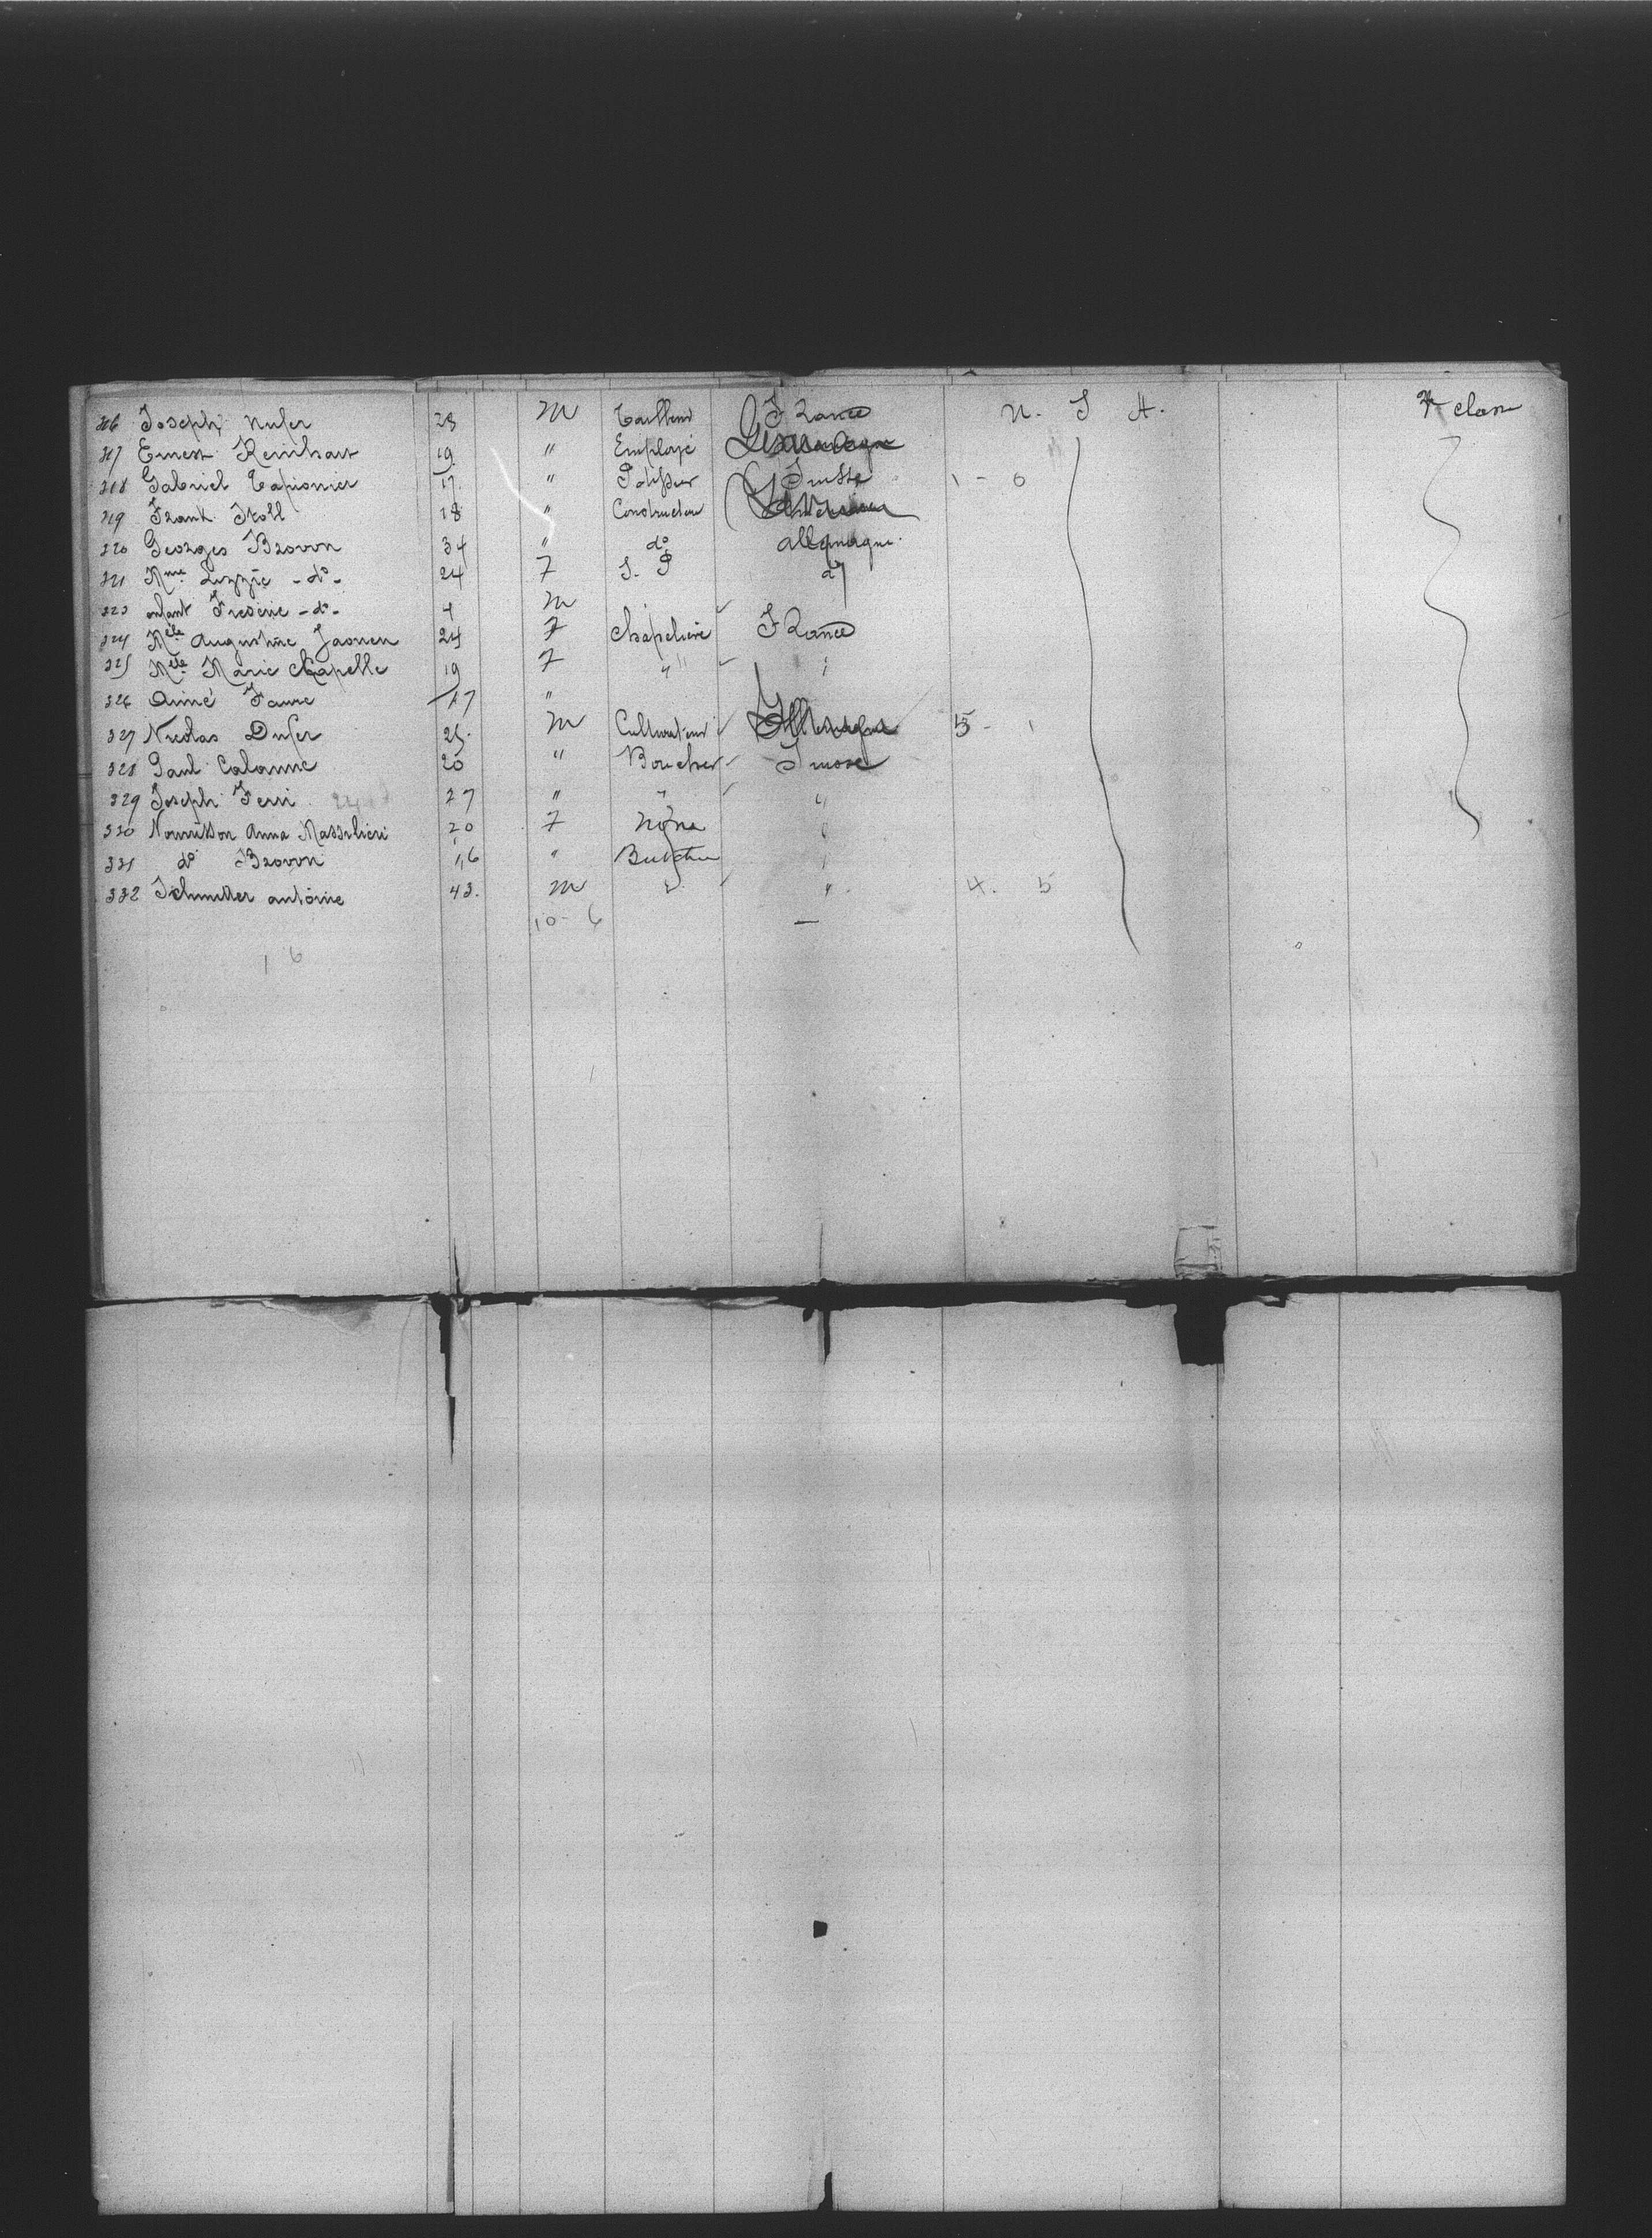 316 Joseph Nufer 23 M Tailleur France U. S A. F classe
317 Ernest Reinhart 19 " Employé
318 Gabriel Tapionier 17 " Suisse 1 - 0
319 Frank 18 " Constructeur
320 Georges Brown 34 " do allemagne.
321 Mme Lizzie - do - 24 F S. P do
323 enfant - do - 4 M
324 Melle Augustine Jaouen 24 F chapelière France
325 Melle Marie Chapelle 19 F " "
326 Aimé Faure 17 "
327 Nicolas Dufer 25. M Cultivateur 5 - 1
328 Paul Calanne 20 " Boucher Suisse
329 Joseph Ferri 27 " " "
330 Nourisson Anna 20 F "
331 do Brown 16 " "
332 antoine 43. M " 4. 5
10 - 6
1 6